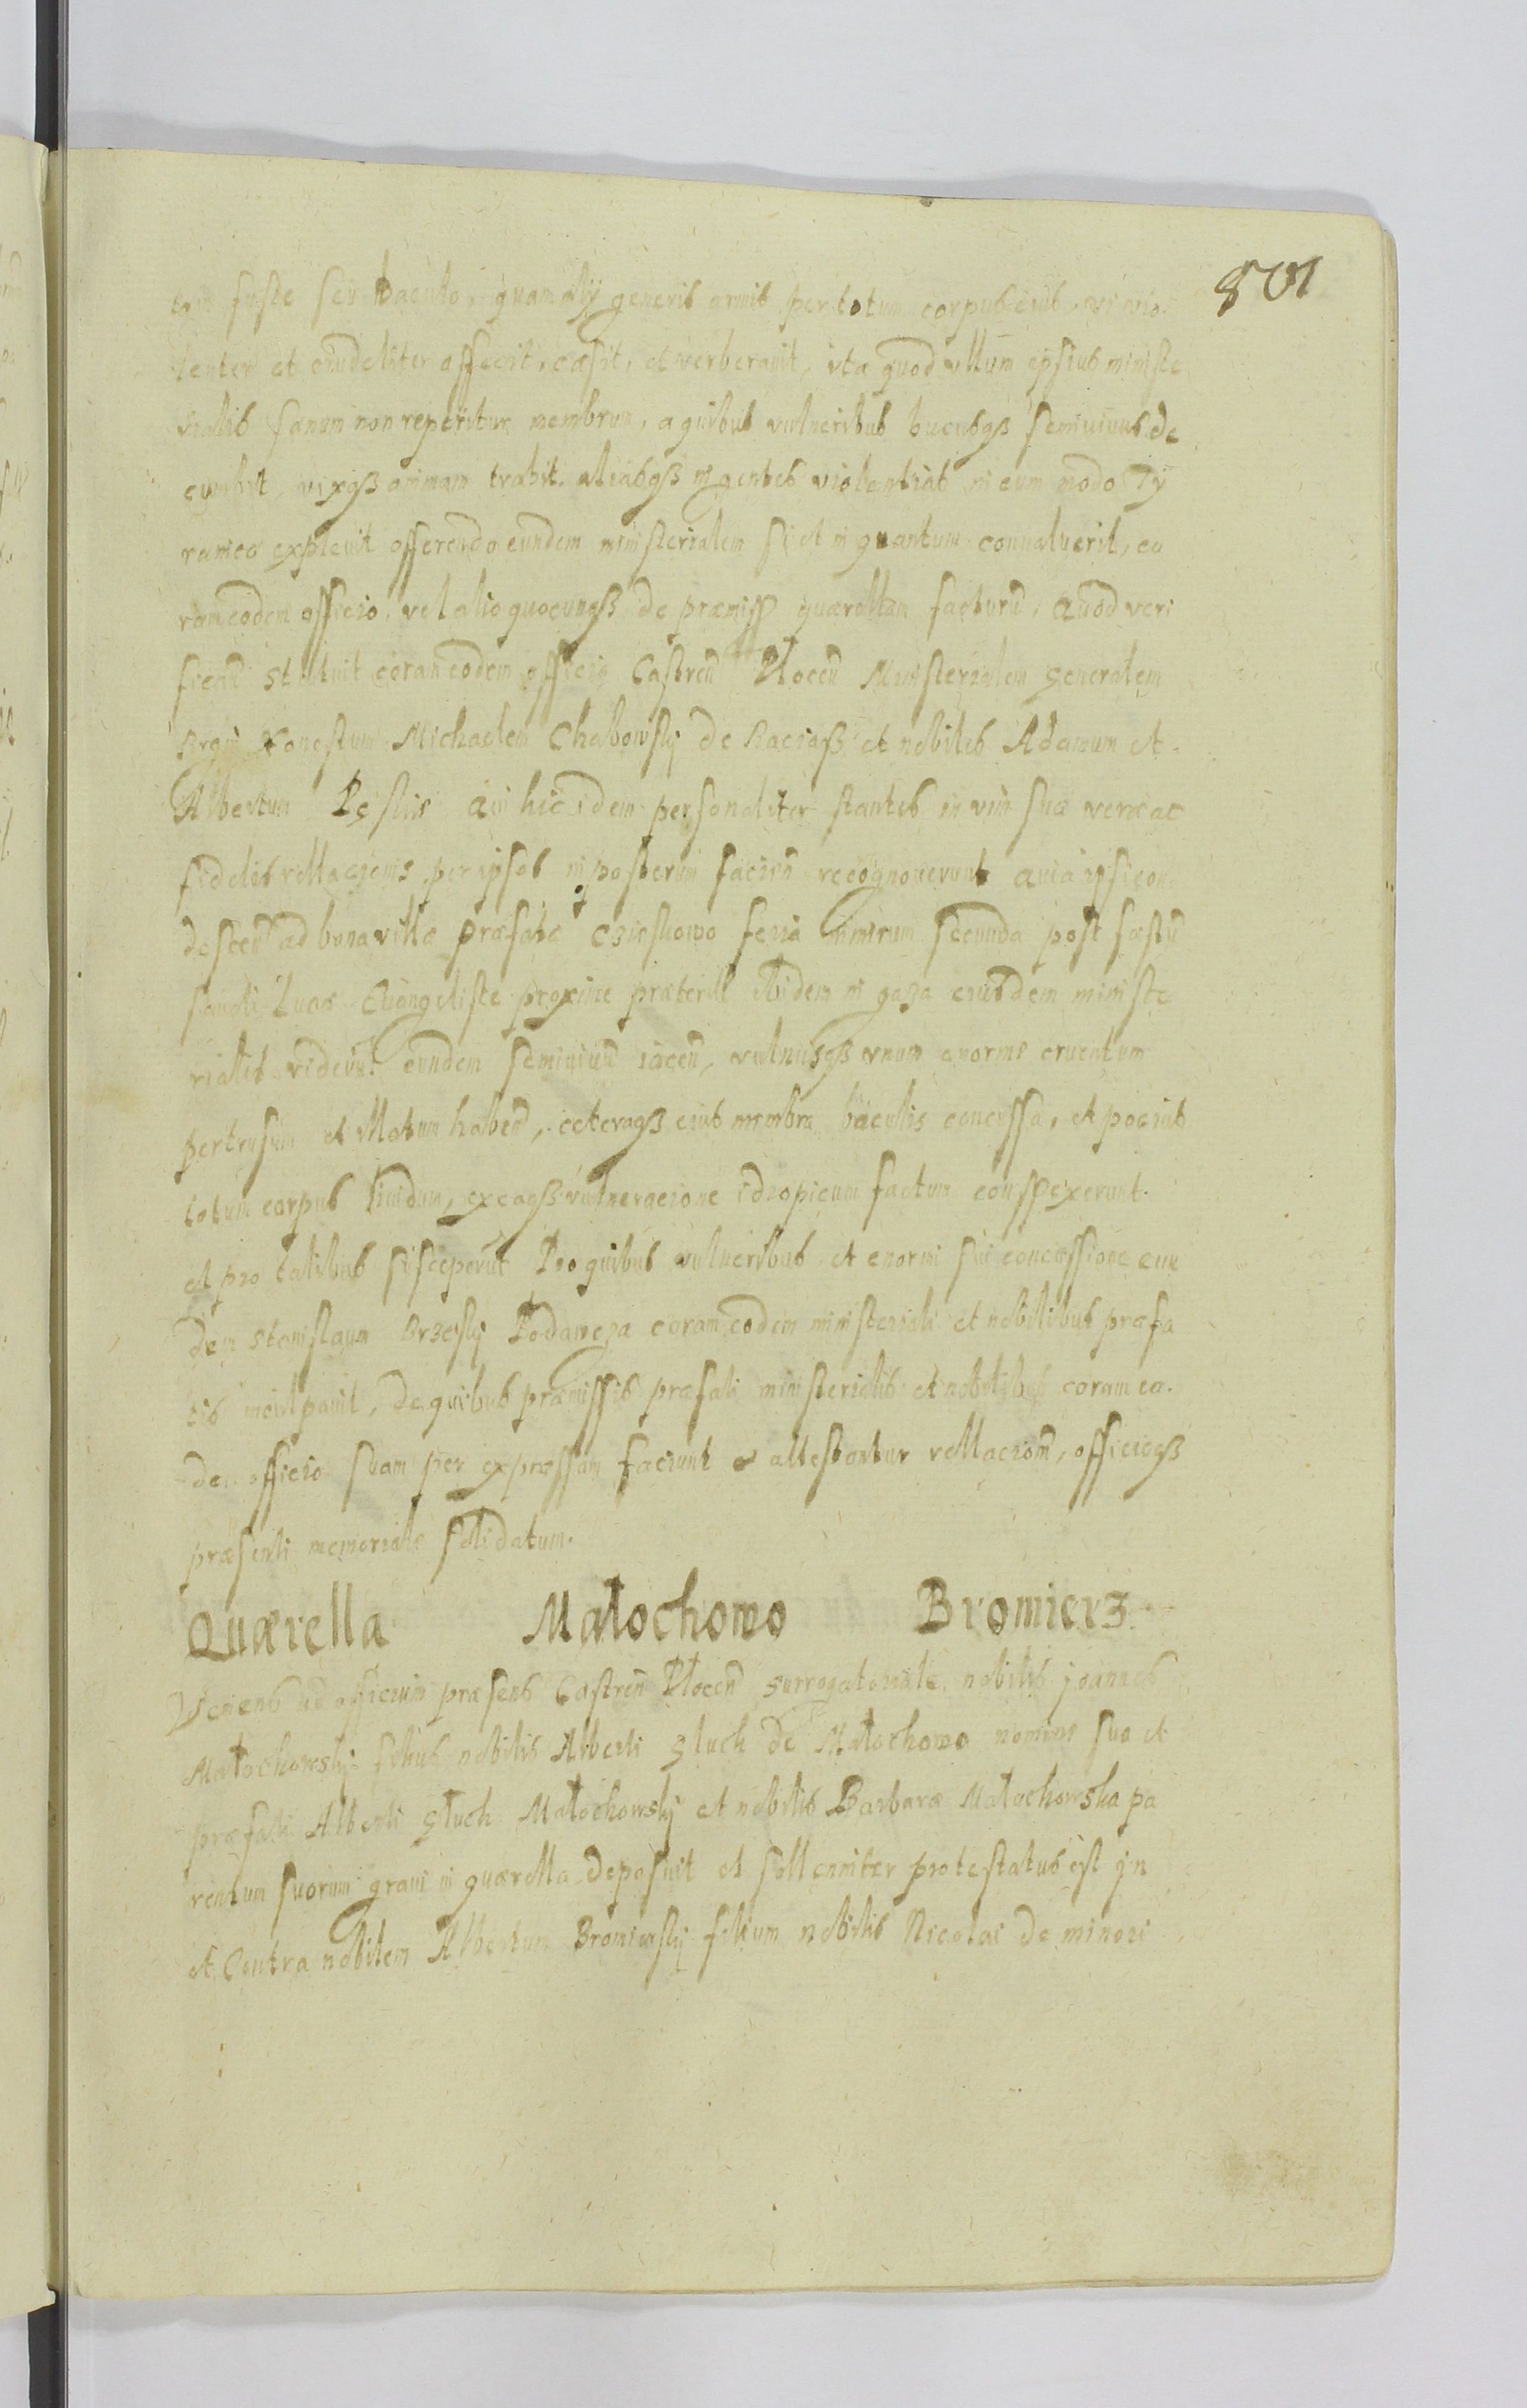 801
tam fuste seu baculo, quam alÿ generis armis per totum corpus eius, vi vio
lenter et crudeliter affecit, cæsit, et verberauit, ita quod ullum ipsius ministe
rialis sanum non reperitur membrum, a quibus vulneribus hucusqß semiuiuus de
cumbit, vixqß animam trahit. aliasqß ingentes violentias in eum modo Tÿ
ranico expleuit offerendo eundem ministerialem si et in quantum conualuerit, co
ram eodem officio, vel alio quocunqß de præmiss quærellam facturū, Quod veri
ficañ statuit coram eodem officio Castreñ Płoceñ Ministerialem generalem
Regni Honestum Michaelem Chabowskj de Raciąß et nobiles Adamum et
Albertum Qui hic idem personaliter stantes in vim suæ veræ ac
fidelis rellacionis per ipsos in posterum facien recognouerunt quia ipsi con
desceñ ad bona villæ præfatæ feria nimirum secunda post fæstū
sancti Lucæ Euangelistæ proxime præterit Ibidem in gaza eiusdem ministe
rialis viderūt eundem semiuiuū iaceñ, vulnusqß vnum enorme cruentum
pertusum et illatum habeñ, ceteraqß eius membra baculis concussa, et pocius
totum corpus liuidum, ex eaqß vulneracione idropicum factum conspexerunt.
et pro talibus susceperūt Pro quibus vulneribus et enormi sui concussione eun
dem Stanislaum Brzeskj Podawcza coram eodem ministeriali et nobilibus præfa
tis inculpauit, de quibus præmissis præfati ministerialis et nobiles coram eo
dem officio suam per expressam faciunt et attestantur rellacionē, officioqß
præsenti memoriale solidatum.
Quærella Małochowo Bromierz
Veniens ad officium præsens Castreñ Płoceñ surrogatoriale nobilis joannes
Małochowskj filius nobilis Alberti Głuch de Małochowo nomine suo et
præfati Alberti Głuch Małochowskj et nobilis Barbaræ Małochowska pa
rentum suorum graui in quærella deposuit et sollenniter protestatus est jn
et Contra nobilem Albertum Bromirskj filium nobilis Nicolai de minori